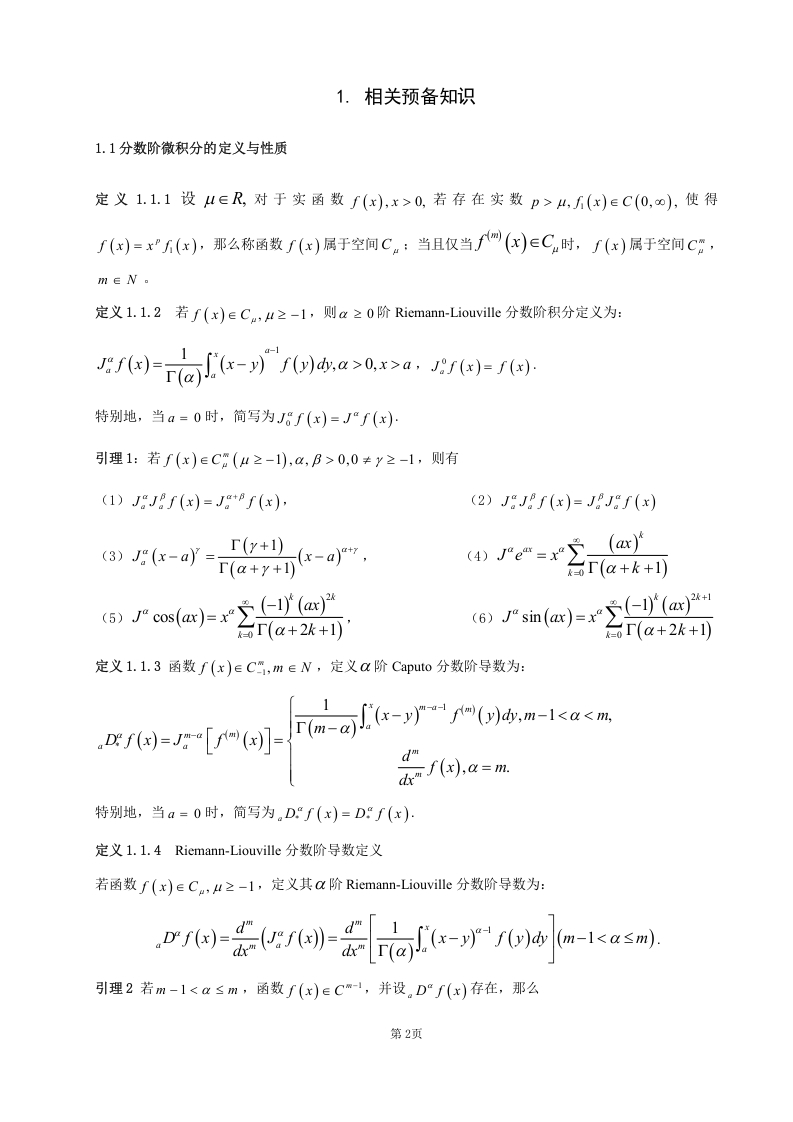 1. 相关预备知识
1.1 分数阶微积分的定义与性质
定义 1.1.1 设 $\mu \in R$, 对于实函数 $f(x), x > 0$, 若存在实数 $p > \mu, f_1(x) \in C(0, \infty)$, 使得
$f(x) = x^p f_1(x)$，那么称函数 $f(x)$ 属于空间 $C_\mu$；当且仅当 $f^{(m)}(x) \in C_\mu$ 时， $f(x)$ 属于空间 $C_\mu^m$，
$m \in N$ 。
定义 1.1.2 若 $f(x) \in C_\mu, \mu \geq -1$，则 $\alpha \geq 0$ 阶 Riemann-Liouville 分数阶积分定义为:
$J_a^\alpha f(x) = \frac{1}{\Gamma(\alpha)} \int_a^x (x-y)^{a-1} f(y) dy, \alpha > 0, x > a$，$J_a^0 f(x) = f(x)$.
特别地，当 $a = 0$ 时，简写为 $J_0^\alpha f(x) = J^\alpha f(x)$.
引理 1: 若 $f(x) \in C_\mu^m (\mu \geq -1), \alpha, \beta > 0, 0 \neq \gamma \geq -1$，则有
（1） $J_a^\alpha J_a^\beta f(x) = J_a^{\alpha+\beta} f(x)$， （2） $J_a^\alpha J_a^\beta f(x) = J_a^\beta J_a^\alpha f(x)$
（3） $J_a^\alpha (x-a)^\gamma = \frac{\Gamma(\gamma+1)}{\Gamma(\alpha+\gamma+1)} (x-a)^{\alpha+\gamma}$， （4） $J^\alpha e^{ax} = x^\alpha \sum_{k=0}^{\infty} \frac{(ax)^k}{\Gamma(\alpha+k+1)}$
（5） $J^\alpha \cos(ax) = x^\alpha \sum_{k=0}^{\infty} \frac{(-1)^k (ax)^{2k}}{\Gamma(\alpha+2k+1)}$， （6） $J^\alpha \sin(ax) = x^\alpha \sum_{k=0}^{\infty} \frac{(-1)^k (ax)^{2k+1}}{\Gamma(\alpha+2k+1)}$
定义 1.1.3 函数 $f(x) \in C_{-1}^m, m \in N$，定义 $\alpha$ 阶 Caputo 分数阶导数为:
${}_aD_*^\alpha f(x) = J_a^{m-\alpha} \left[ f^{(m)}(x) \right] = \begin{cases} \frac{1}{\Gamma(m-\alpha)} \int_a^x (x-y)^{m-a-1} f^{(m)}(y) dy, m-1 < \alpha < m, \\ \frac{d^m}{dx^m} f(x), \alpha = m. \end{cases}$
特别地，当 $a = 0$ 时，简写为 ${}_aD_*^\alpha f(x) = D_*^\alpha f(x)$.
定义 1.1.4 Riemann-Liouville 分数阶导数定义
若函数 $f(x) \in C_\mu, \mu \geq -1$，定义其 $\alpha$ 阶 Riemann-Liouville 分数阶导数为:
${}_aD^\alpha f(x) = \frac{d^m}{dx^m} \left( J_a^\alpha f(x) \right) = \frac{d^m}{dx^m} \left[ \frac{1}{\Gamma(\alpha)} \int_a^x (x-y)^{\alpha-1} f(y) dy \right] (m-1 < \alpha \leq m)$.
引理 2 若 $m-1 < \alpha \leq m$，函数 $f(x) \in C^{m-1}$，并设 ${}_aD^\alpha f(x)$ 存在，那么
第 2页